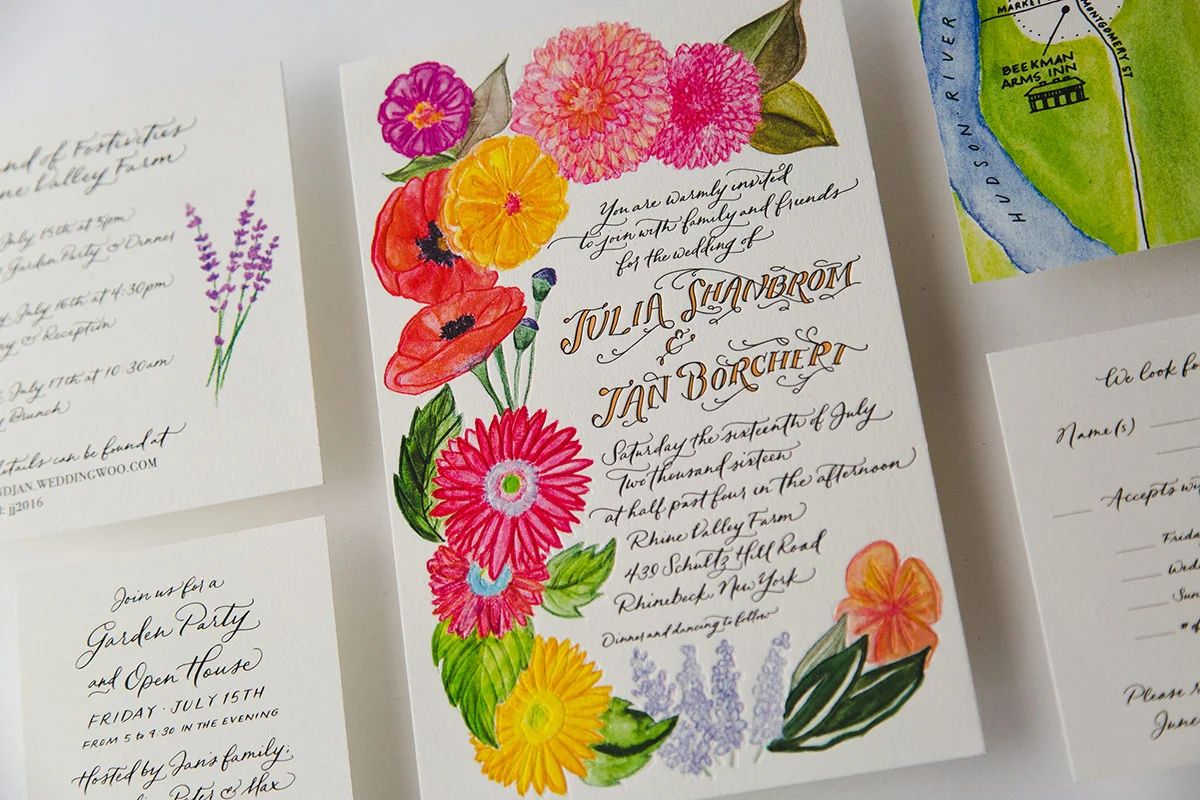 nd of Festivities
ne Valley Farm
July 15th at 5pm
Garden Party & Dinner
July 16th at 4:30pm
ny & Reception
, July 17th at 10:30am
Brunch
details can be found at
NDJAN.WEDDINGWOO.COM
: jj2016
Join us for a
Garden Party
and Open House
FRIDAY · JULY 15TH
FROM 5 to 9:30 IN THE EVENING
Hosted by Jan's family:
Peter & Max
You are warmly invited
to join with family and friends
for the wedding of
JULIA SHANBROM
&
JAN BORCHERT
Saturday the sixteenth of July
Two thousand sixteen
at half past four in the afternoon
Rhine Valley Farm
439 Schultz Hill Road
Rhinebeck, New York
Dinner and dancing to follow
MARKET
MONTGOMERY ST
BEEKMAN
ARMS INN
HUDSON RIVER
We look fo
Name(s)
Accepts wi
Frida
Wed
Sun
# of
Please r
June